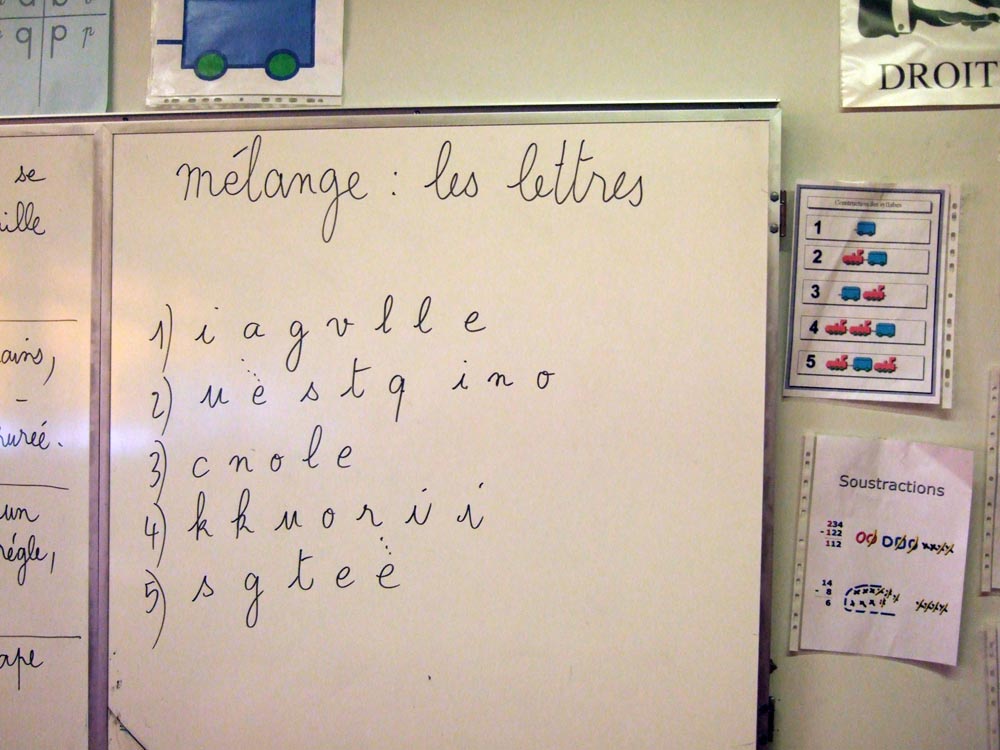 q p p
DROIT
mélange : les lettres
1) i a g v l l e
2) u e s t q i n o
3) c n o l e
4) k k u o r i i
5) s g t e e
se
ille
ains,
-
purée.
un
régle,
ape
Construction des syllabes
1
2
3
4
5
Soustractions
234
-122
112
14
- 8
6